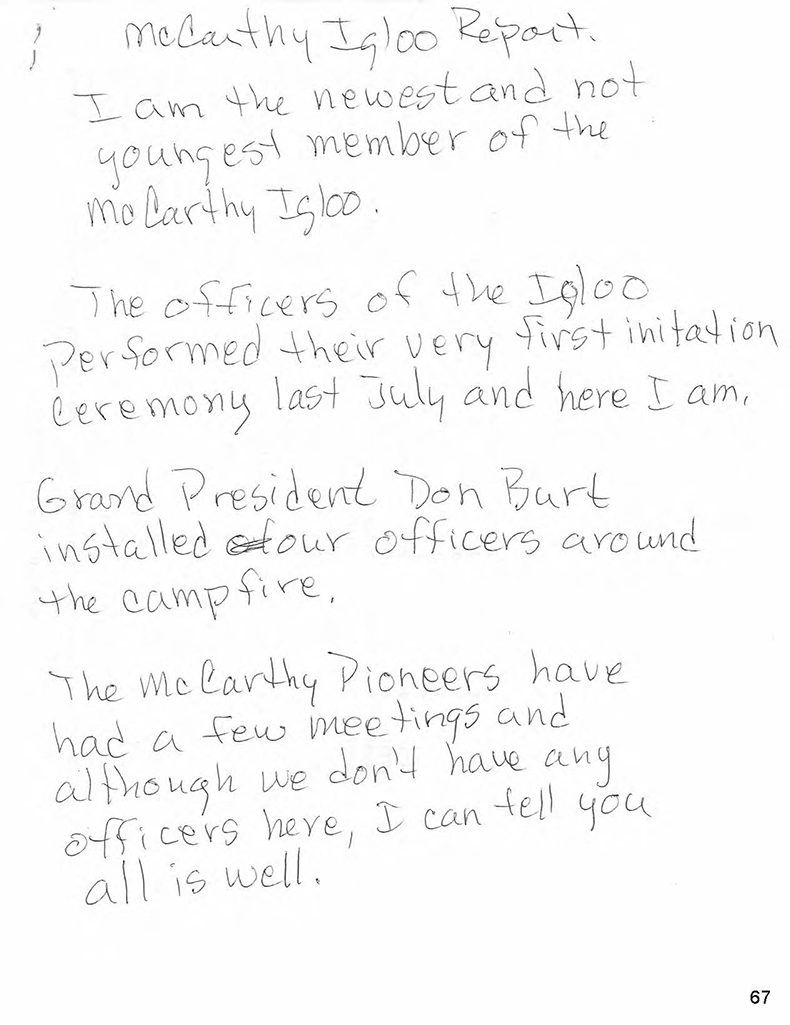 McCarthy Igloo Report.
I am the newest and not
youngest member of the
McCarthy Igloo.
The officers of the Igloo
performed their very first initation
ceremony last July and here I am.
Grand President Don Burt
installed our officers around
the campfire.
The McCarthy Pioneers have
had a few meetings and
although we don't have any
officers here, I can tell you
all is well.
67